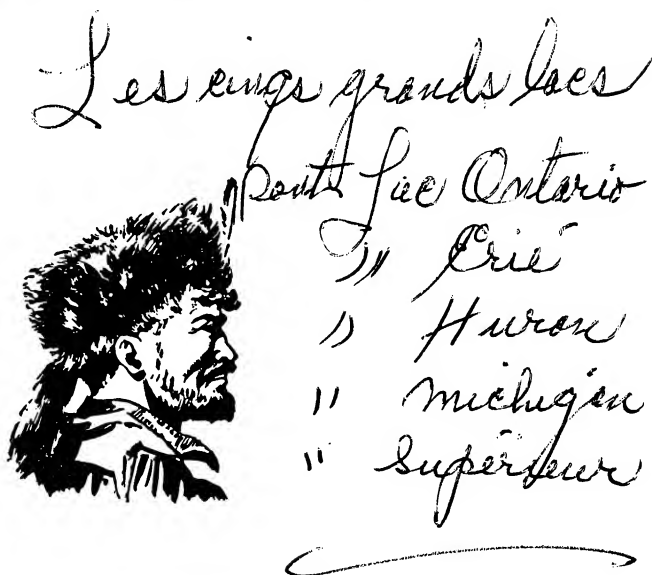 Les cinqs grands lacs
sont Lac Ontario
" Érié
" Huron
" Michigan
" Supérieur